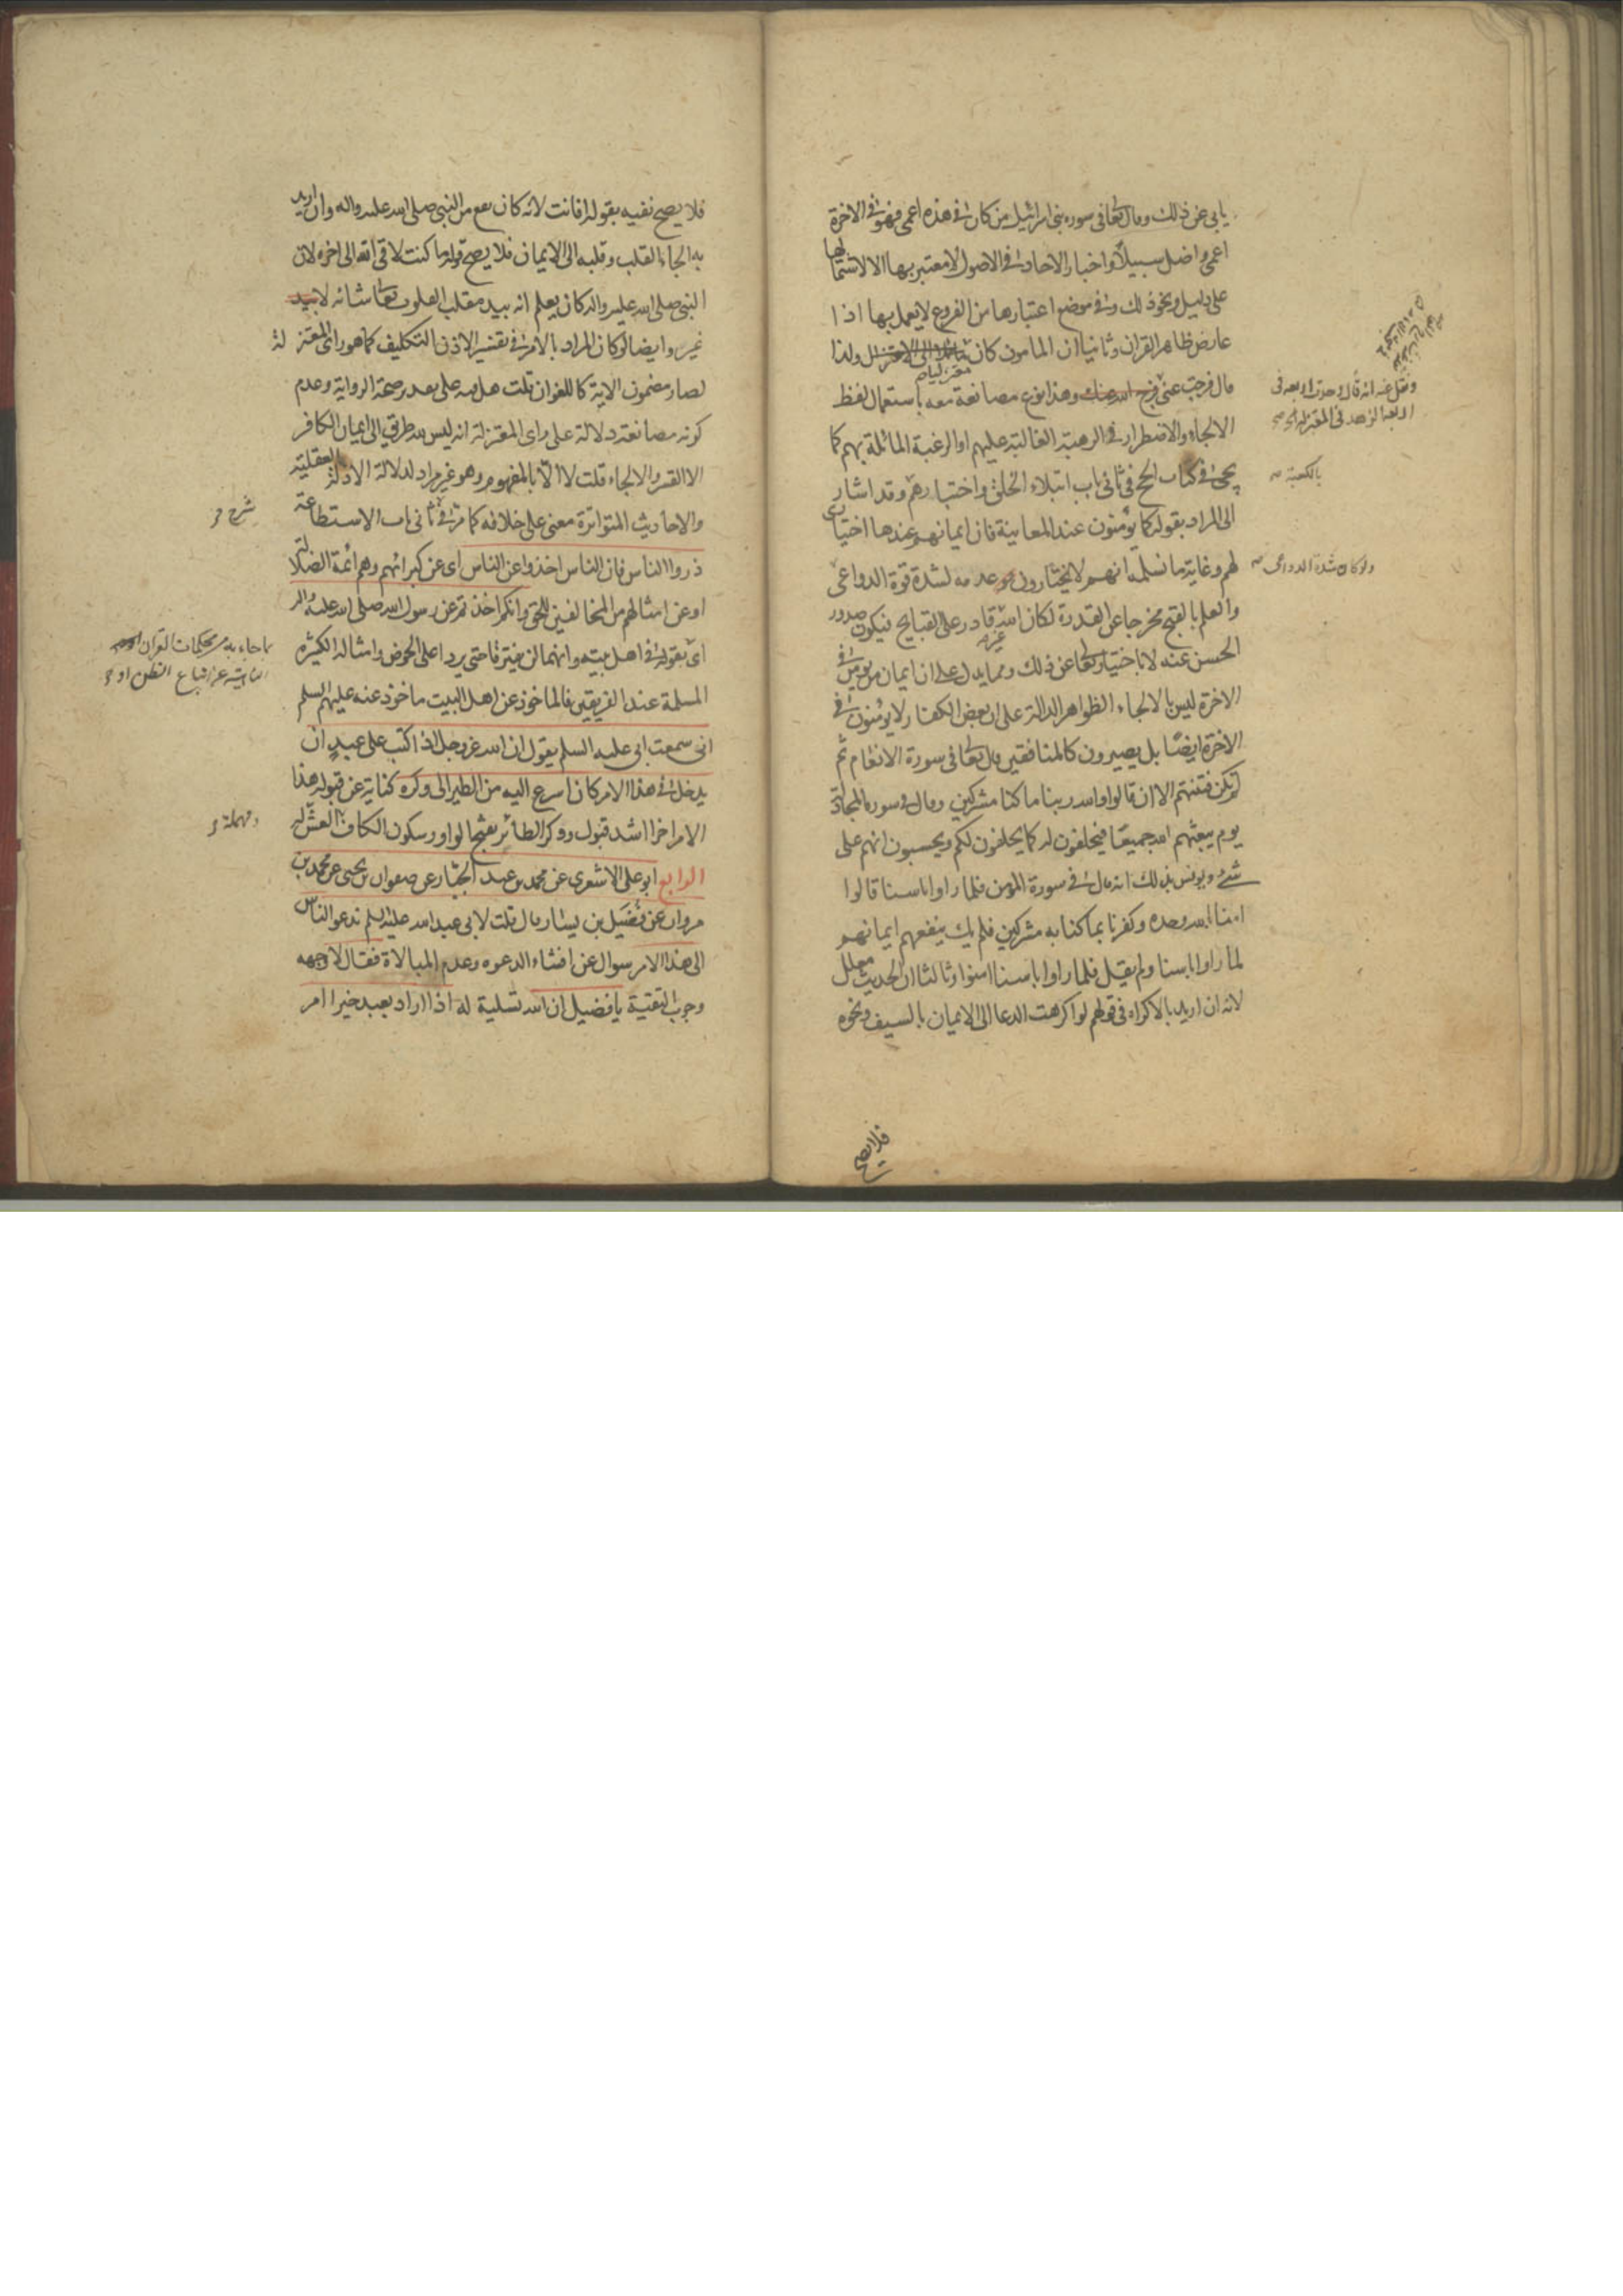 يابى عن ذلك وقال تعالى فى سورة بنى اسرائيل من كان فى هذه اعمى فهو فى الاخرة
اعمى واضل سبيلا واخبار الاحاد فى الاصول لا معتبر بها الا لاشتمالها
على دليل ونحو ذلك وفى موضع اعتبارها من الفروع لا يعمل بها اذا
عارض ظاهر القران وثانيا ان المامون كان مائلا الى الاعتزال ولذا
معتزليا
قال فرجت عنى فرج الله عنك وهذا نوع مصانعة معه باستعمال لفظ
الالجاء والاضطرار فى الرهبة الغالبة عليهم او الرغبة المائلة بهم كما
يجئ فى كتاب الحج فى ثانى باب ابتلاء الخلق واختبارهم وقد اشار
الى المراد بقوله كما يؤمنون عند المعاينة فان ايمانهم عندها اختيارى
لهم وغاية ما نسلمه انهم لا يختارون عدمه لشدة قوة الدواعى
والعلم بالقبح مخرجا عن القدرة لكان الله قادر على القبايح فيكون صدور
الحسن عنه لا باختياره تعالى عن ذلك ومما يدل على ان ايمان من يؤمن فى
الاخرة ليس بالالجاء الظواهر الدالة على ان بعض الكفار لا يؤمنون فى
الاخرة ايضا بل يصيرون كالمنافقين قال تعالى فى سورة الانعام ثم
لم تكن فتنتهم الا ان قالوا والله ربنا ما كنا مشركين وقال فى سورة المجادلة
يوم يبعثهم الله جميعا فيحلفون له كما يحلفون لكم ويحسبون انهم على
شئ ويونس بذلك انه قال فى سورة المؤمن فلما راوا باسنا قالوا
امنا بالله وحده وكفرنا بما كنا به مشركين فلم يك ينفعهم ايمانهم
لما راوا باسنا ولم يقل فلما راوا باسنا امنوا وثالثا ان الحديث معلل
لانه ان اريد بالاكراه فى قولهم لو اكرهت الدعا الى الايمان بالسيف ونحوه
ونقل عنه انه قال
بالكعبة
ولو كان شدة الدواعى
فلا يصح
فلا يصح نفيه بقوله افانت لانه كان يقع من النبى صلى الله عليه واله وان اريد
به الجاء القلب وقلبه الى الايمان فلا يصح قوله ما كنت لالقى الله الى اخره لان
النبى صلى الله عليه واله كان يعلم انه بيد مقلب القلوب تعالى شانه لا بيد
غيره وايضا لو كان المراد بالامر فى تفسير الاذن التكليف كما هو راى المعتزلة
لصار مضمون الاية كاللغو ان قلت هل فيه على بعد صحة الرواية وعدم
كونه مصانعة دلالة على راى المعتزلة انه ليس لله طريق الى ايمان الكافر
الا القسر والالجاء قلت لا الا بالمفهوم وهو غير مراد لدلالة الادلة العقلية
والاحاديث المتواترة معنى على خلافه كما مر فى ثانى باب الاستطاعة
ذروا الناس فان الناس اخذوا عن الناس اى عن كبرائهم وهم ائمة الضلالة
او عن امثالهم من المخالفين للحق وانكم اخذتم عن رسول الله صلى الله عليه واله
اى بقوله فى اهل بيته وانهما لن يفترقا حتى يردا على الحوض وامثاله الكثيرة
المسلمة عند الفريقين فالماخوذ عن اهل البيت ماخوذ عنه عليهم السلم
انى سمعت ابى عليه السلم يقول ان الله عز وجل اذا كتب على عبد ان
يدخل فى هذا الامر كان اسرع اليه من الطير الى وكره كناية عن قبوله هذا
الامر اخرا اشد قبول ووكر الطائر بفتح الواو وسكون الكاف العش له
الرابع ابو على الاشعرى عن محمد بن عبد الجبار عن صفوان بن يحيى عن محمد بن
مروان عن فضيل بن يسار قال قلت لابى عبد الله عليه السلم ندعو الناس
الى هذا الامر سوال عن افشاء الدعوه وعدم المبالاة فقال لا وجهه
وجوب التقية يا فضيل ان الله تسلية له اذا اراد بعبد خيرا امر
شرح
ما جاء به من محكمات القران
الناهية عن اتباع الظن او
ومهملة